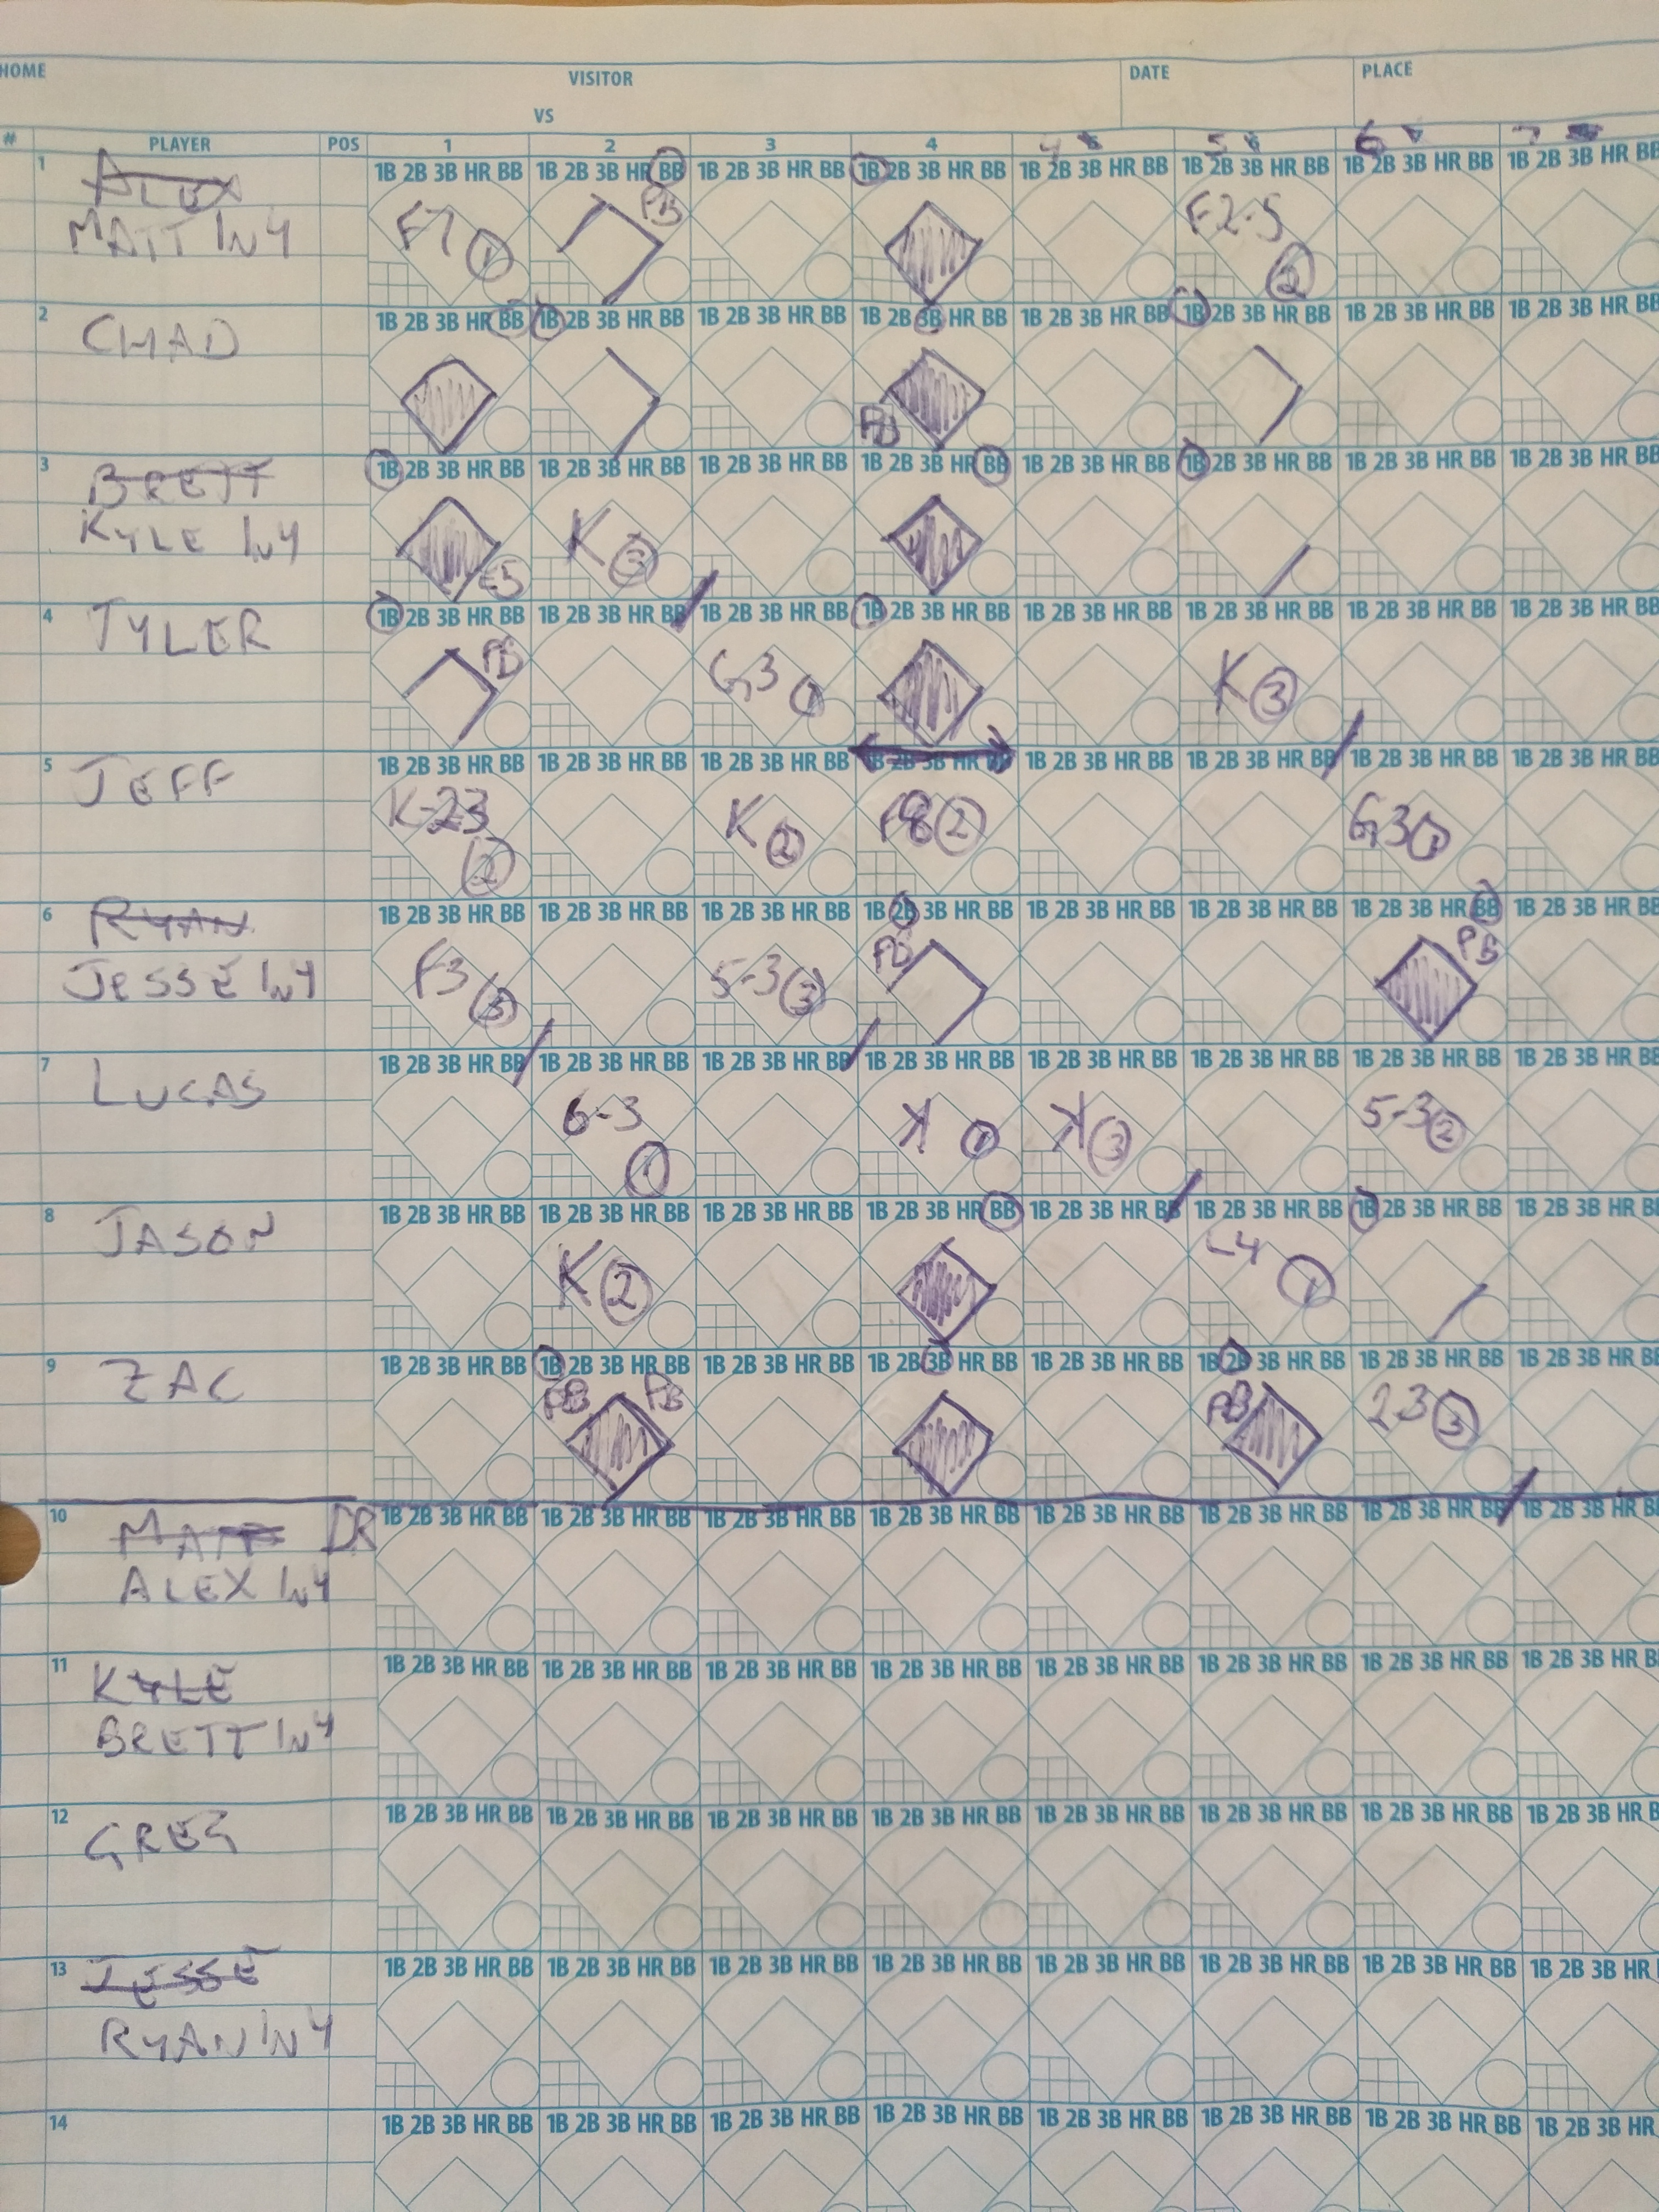 HOME VISITOR DATE PLACE
VS
# PLAYER POS 1 2 3 4 4 5 6 7
1 ALEX 1B 2B 3B HR BB 1B 2B 3B HR BB 1B 2B 3B HR BB 1B 2B 3B HR BB 1B 2B 3B HR BB 1B 2B 3B HR BB 1B 2B 3B HR BB 1B 2B 3B HR BB
MATT IN 4 F7 1 PB F2-5 2
2 CHAD 1B 2B 3B HR BB 1B 2B 3B HR BB 1B 2B 3B HR BB 1B 2B 3B HR BB 1B 2B 3B HR BB 1B 2B 3B HR BB 1B 2B 3B HR BB 1B 2B 3B HR BB
PB
3 BRETT 1B 2B 3B HR BB 1B 2B 3B HR BB 1B 2B 3B HR BB 1B 2B 3B HR BB 1B 2B 3B HR BB 1B 2B 3B HR BB 1B 2B 3B HR BB 1B 2B 3B HR BB
KYLE IN 4 E5 K 3
4 TYLER 1B 2B 3B HR BB 1B 2B 3B HR BB 1B 2B 3B HR BB 1B 2B 3B HR BB 1B 2B 3B HR BB 1B 2B 3B HR BB 1B 2B 3B HR BB 1B 2B 3B HR BB
PB G3 1 K 3
5 JEFF 1B 2B 3B HR BB 1B 2B 3B HR BB 1B 2B 3B HR BB 1B 2B 3B HR BB 1B 2B 3B HR BB 1B 2B 3B HR BB 1B 2B 3B HR BB 1B 2B 3B HR BB
K-23 2 K 2 F8 2 G3 1
6 RYAN 1B 2B 3B HR BB 1B 2B 3B HR BB 1B 2B 3B HR BB 1B 2B 3B HR BB 1B 2B 3B HR BB 1B 2B 3B HR BB 1B 2B 3B HR BB 1B 2B 3B HR BB
JESSE IN 4 F3 3 5-3 3 PB PB
7 LUCAS 1B 2B 3B HR BB 1B 2B 3B HR BB 1B 2B 3B HR BB 1B 2B 3B HR BB 1B 2B 3B HR BB 1B 2B 3B HR BB 1B 2B 3B HR BB 1B 2B 3B HR BB
6-3 1 K 1 K 3 5-3 2
8 JASON 1B 2B 3B HR BB 1B 2B 3B HR BB 1B 2B 3B HR BB 1B 2B 3B HR BB 1B 2B 3B HR BB 1B 2B 3B HR BB 1B 2B 3B HR BB 1B 2B 3B HR BB
K 2 L4 1
9 ZAC 1B 2B 3B HR BB 1B 2B 3B HR BB 1B 2B 3B HR BB 1B 2B 3B HR BB 1B 2B 3B HR BB 1B 2B 3B HR BB 1B 2B 3B HR BB 1B 2B 3B HR B
PB PB PB 2-3 3
10 MATT DR 1B 2B 3B HR BB 1B 2B 3B HR BB 1B 2B 3B HR BB 1B 2B 3B HR BB 1B 2B 3B HR BB 1B 2B 3B HR BB 1B 2B 3B HR BB 1B 2B 3B HR B
ALEX IN 4
11 KYLE 1B 2B 3B HR BB 1B 2B 3B HR BB 1B 2B 3B HR BB 1B 2B 3B HR BB 1B 2B 3B HR BB 1B 2B 3B HR BB 1B 2B 3B HR BB 1B 2B 3B HR B
BRETT IN 4
12 GREG 1B 2B 3B HR BB 1B 2B 3B HR BB 1B 2B 3B HR BB 1B 2B 3B HR BB 1B 2B 3B HR BB 1B 2B 3B HR BB 1B 2B 3B HR BB 1B 2B 3B HR B
13 JESSE 1B 2B 3B HR BB 1B 2B 3B HR BB 1B 2B 3B HR BB 1B 2B 3B HR BB 1B 2B 3B HR BB 1B 2B 3B HR BB 1B 2B 3B HR BB 1B 2B 3B HR
RYAN IN 4
14 1B 2B 3B HR BB 1B 2B 3B HR BB 1B 2B 3B HR BB 1B 2B 3B HR BB 1B 2B 3B HR BB 1B 2B 3B HR BB 1B 2B 3B HR BB 1B 2B 3B HR